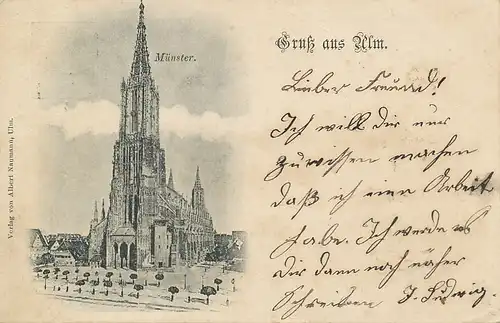 Gruß aus Ulm.
Münster.
Verlag von Albert Naumann, Ulm.
Lieber Freund!
Ich will dir nur
zuwissen machen
daß ich eine Arbeit
habe. Ich werde es
dir dann noch näher
Schreiben J. Ludwig.